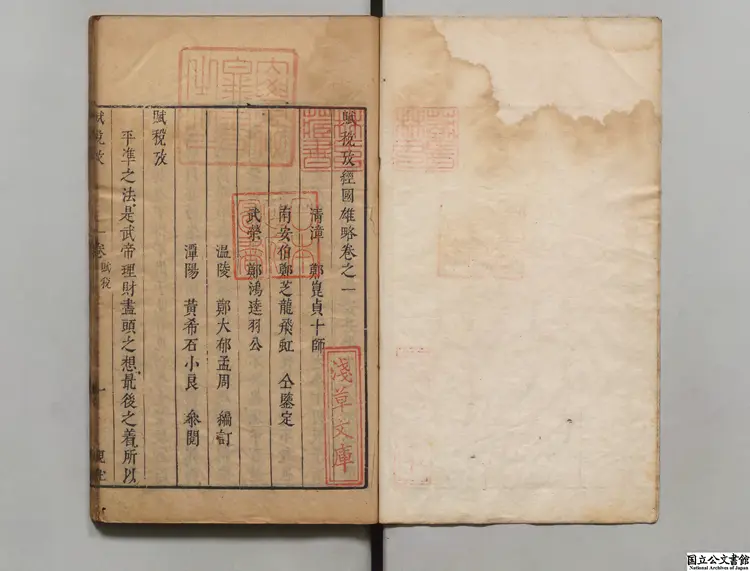 賦稅攷經國雄略卷之一
清漳 鄭崑貞十師
南安伯鄭芝龍飛虹 仝鑒定
武榮 鄭鴻逵羽公
温陵 鄭大郁孟周 編訂
潭陽 黃希石小良 叅閱
賦稅攷
平準之法是武帝理財盡頭之想最後之着所以
賦稅攷 卷一 賦稅 一
淺草文庫
国立公文書館
National Archives of Japan